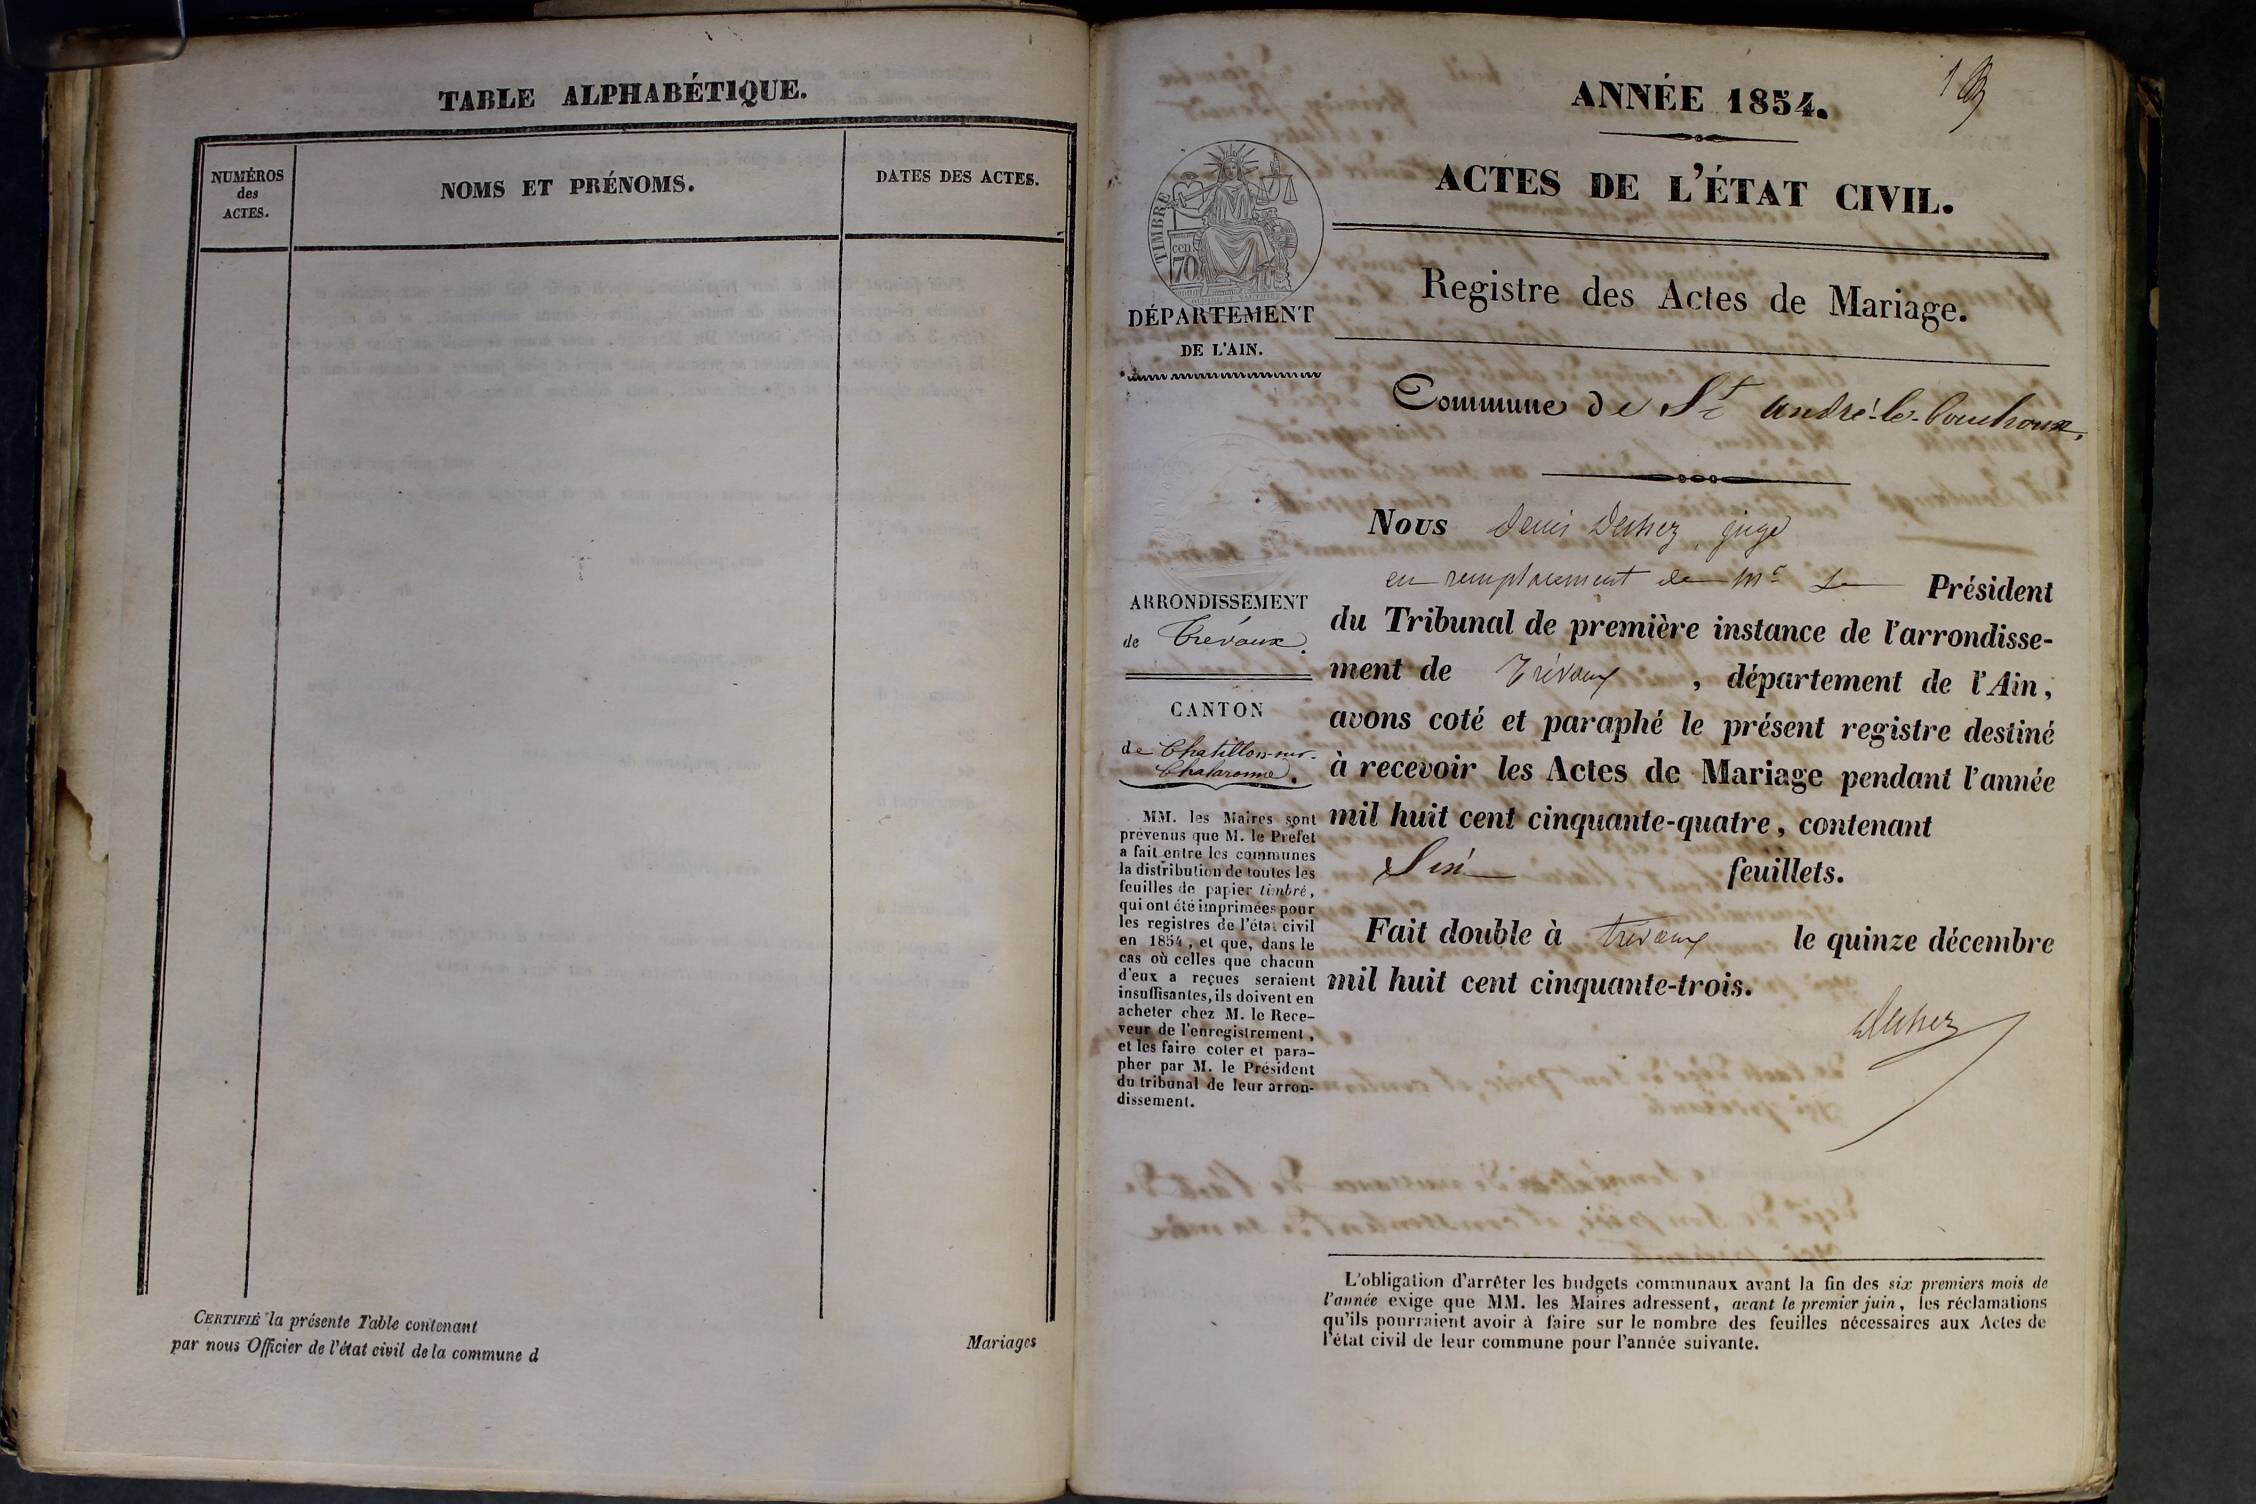 TABLE ALPHABÉTIQUE.
NUMÉROS
des
ACTES.
NOMS ET PRÉNOMS.
DATES DES ACTES.
CERTIFIÉ la présente Table contenant
Mariages
par nous Officier de l'état civil de la commune d
1
ANNÉE 1854.
ACTES DE L'ÉTAT CIVIL.
Registre des Actes de Mariage.
TIMBRE
cen
70
DÉPARTEMENT
DE L'AIN.
Commune de St André-le-Bouchoux.
Nous Denis juge
en remplacement de Mr Le Président
du Tribunal de première instance de l'arrondisse-
ment de Trévoux, département de l'Ain,
avons coté et paraphé le présent registre destiné
à recevoir les Actes de Mariage pendant l'année
mil huit cent cinquante-quatre, contenant
Six feuillets.
Fait double à Trévoux le quinze décembre
mil huit cent cinquante-trois.
ARRONDISSEMENT
de Trévoux.
CANTON
de Chatillon-sur-
Chalaronne.
MM. les Maires sont
prévenus que M. le Préfet
a fait entre les communes
la distribution de toutes les
feuilles de papier timbré,
qui ont été imprimées pour
les registres de l'état civil
en 1854, et que, dans le
cas où celles que chacun
d'eux a reçues seraient
insuffisantes, ils doivent en
acheter chez M. le Rece-
veur de l'enregistrement,
et les faire coter et para-
pher par M. le Président
du tribunal de leur arron-
dissement.
L'obligation d'arrêter les budgets communaux avant la fin des six premiers mois de
l'année exige que MM. les Maires adressent, avant le premier juin, les réclamations
qu'ils pourraient avoir à faire sur le nombre des feuilles nécessaires aux Actes de
l'état civil de leur commune pour l'année suivante.